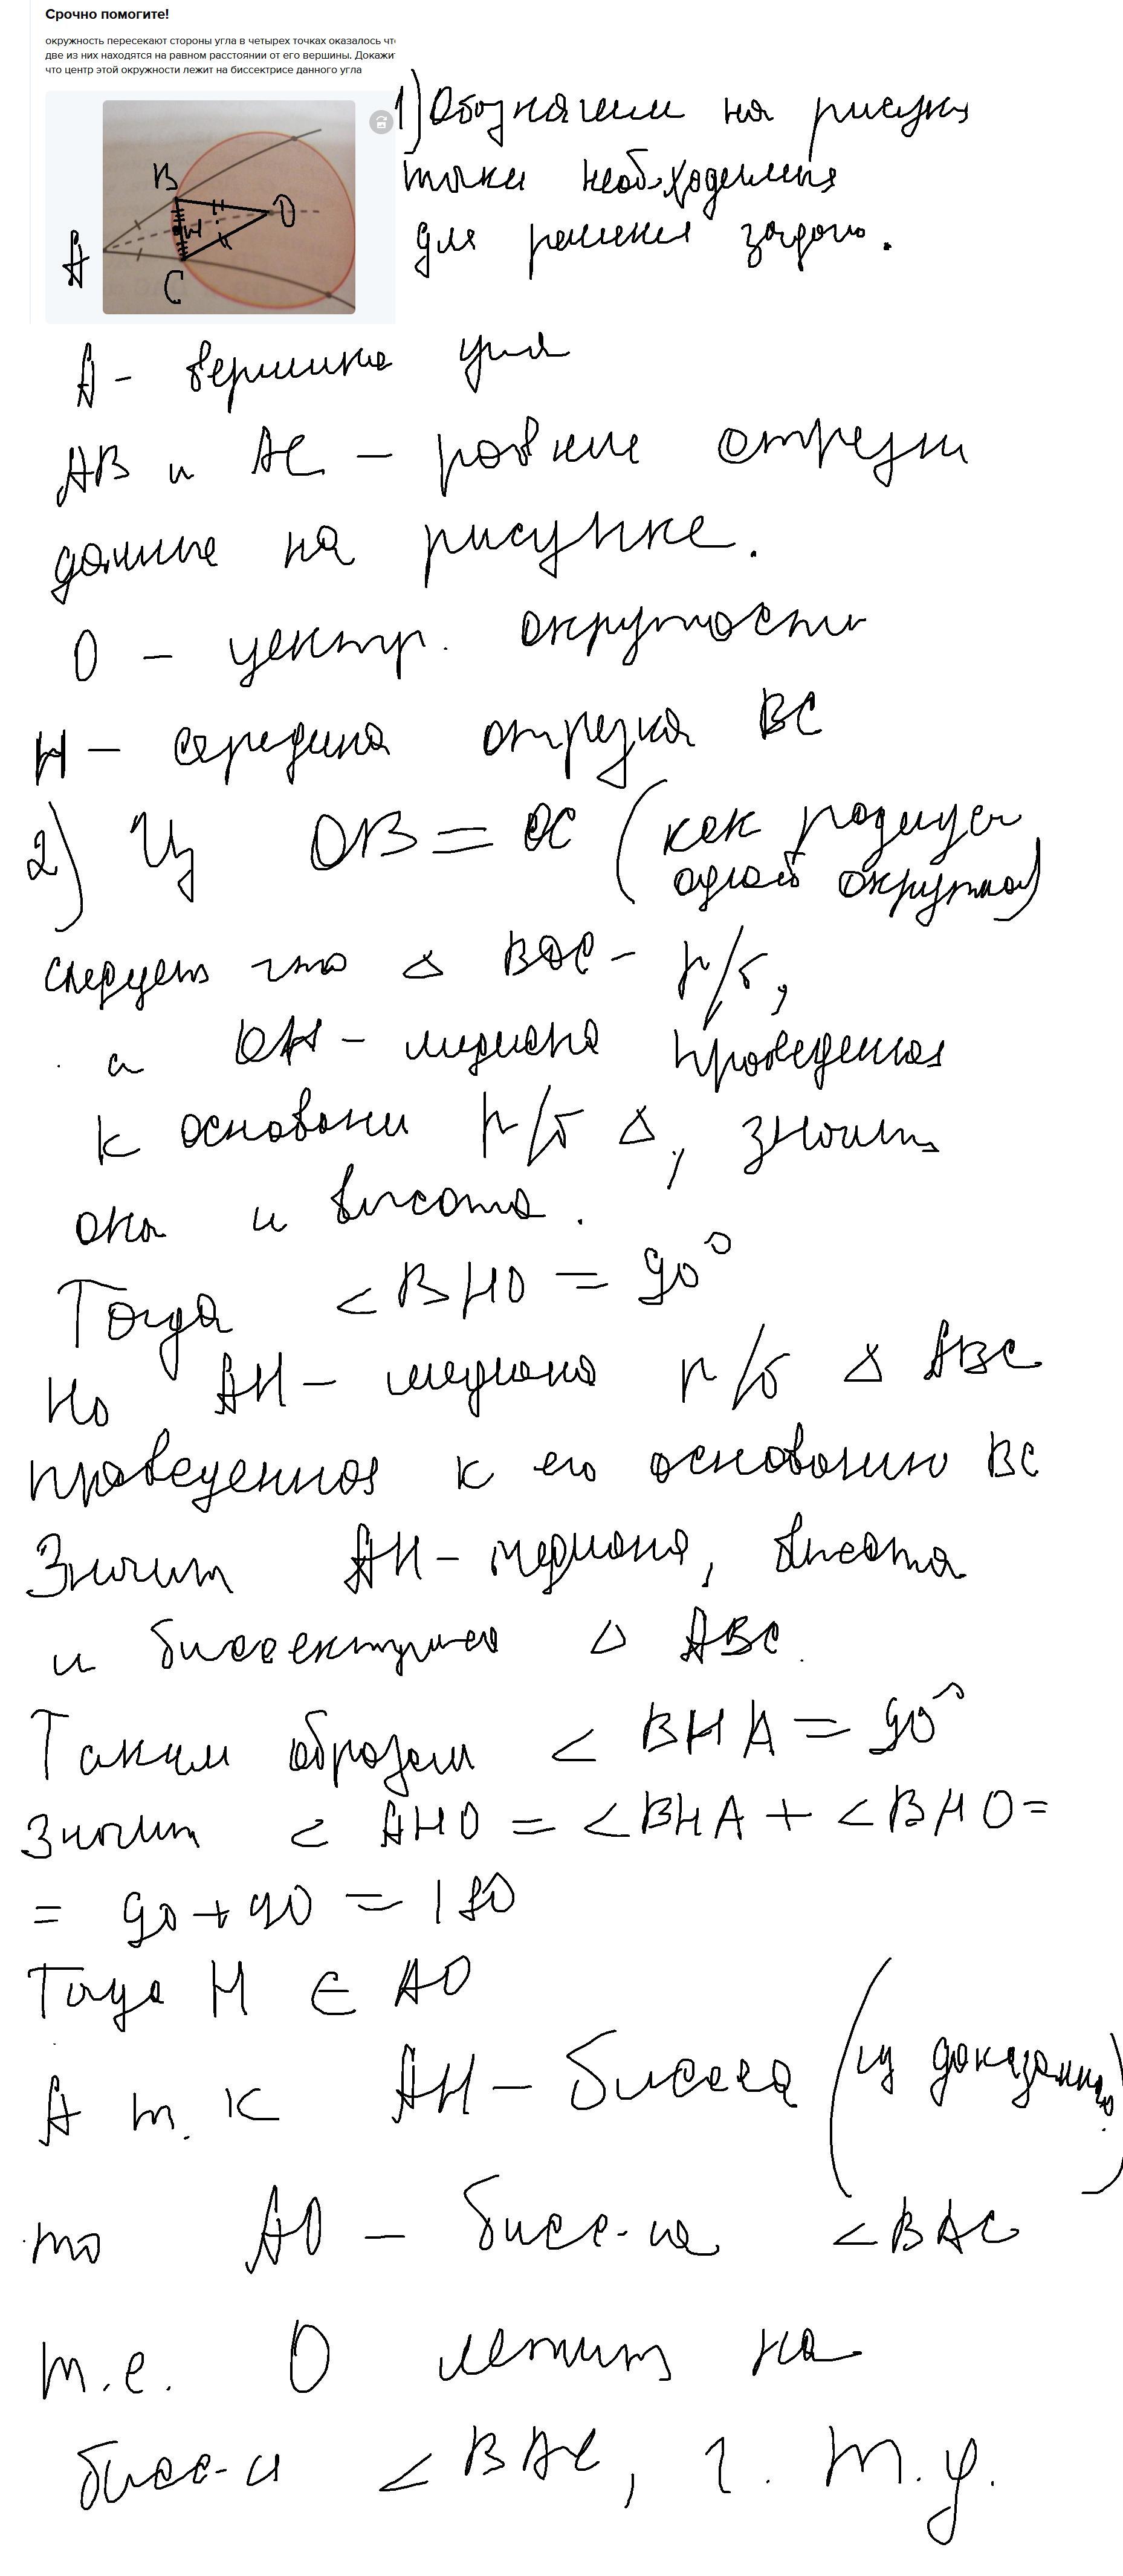 Срочно помогите!
окружность пересекают стороны угла в четырех точках оказалось что
две из них находятся на равном расстоянии от его вершины. Докажит
что центр этой окружности лежит на биссектрисе данного угла
B
O
H
A
C
1) Обозначим на рисунке
точки необходимые
для решения задачи.
A - вершина угла
AB и AC - равные отрезки
данные на рисунке.
O - центр. окружности
H - середина отрезка BC
2) Из OB = OC (как радиусы
одной окружности)
следует что △ BOC - р/б,
а OH - медиана проведенная
к основани р/б △, значит
она и высота.
Тогда <BHO = 90°
Но AH - медиана р/б △ ABC
проведенная к его основанию BC
Значит AH - медиана, высота
и биссектриса △ ABC.
Таким образом < BHA = 90°
Значит < AHO = <BHA + <BHO =
= 90 + 90 = 180
Тогда H ∈ AO
А т.к AH - биссса (из доказанного)
то AO - бисс-са <BAC
т.е. O лежит на
бисс-и <BAC, ч. т.д.